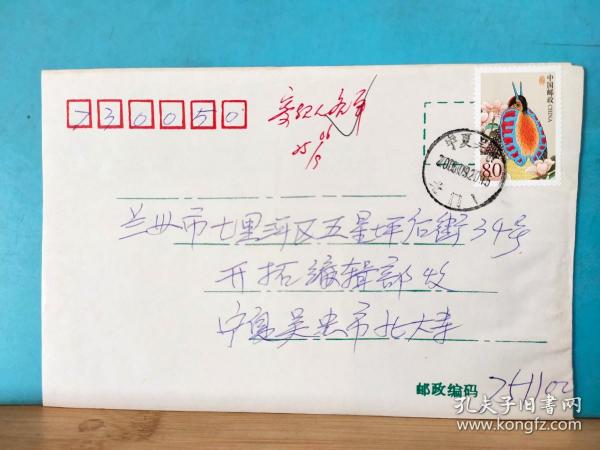 730050
中国邮政
CHINA
80
宁夏吴
2005.09.20
北门1
25/9
兰州市七里河区五星坪后街34号
开拓编辑部收
宁夏吴忠市北大寺
邮政编码 751100
孔夫子旧书网
www.kongfz.com